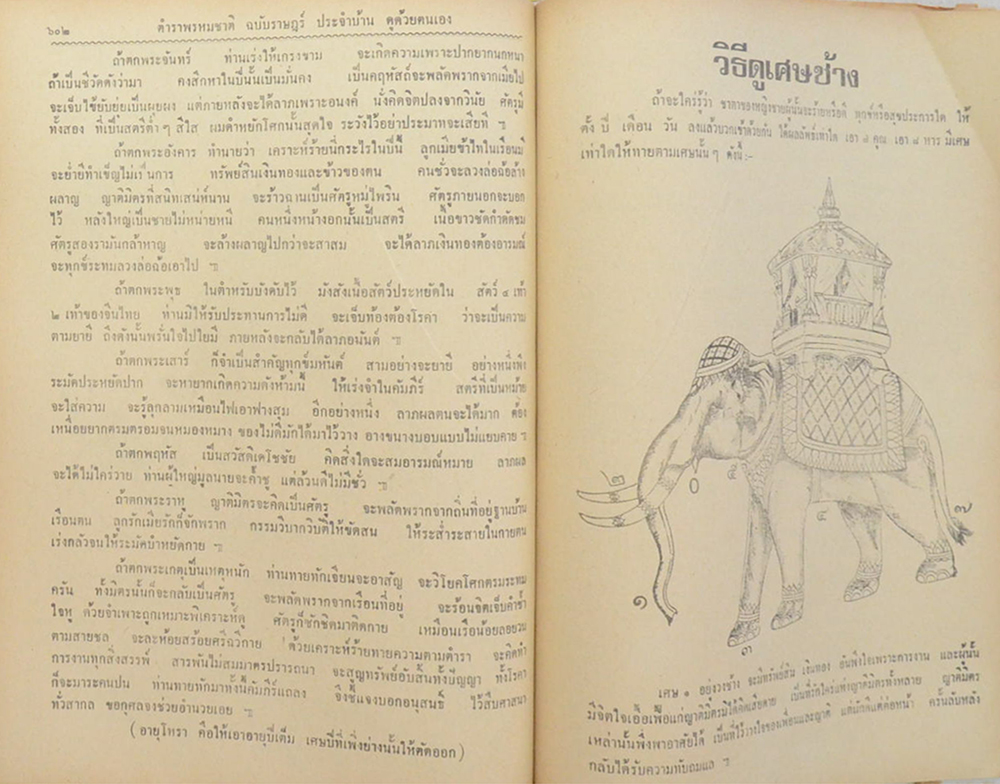 ๖๐๒ ตำราพรหมชาติ ฉบับราษฎร์ ประจำบ้าน ดูด้วยตนเอง
ถ้าตกพระจันทร์ ท่านเร่งให้เกรงขาม จะเกิดความเพราะปากยากนักหนา
ถ้าเป็นชีวัดดังว่ามา คงสึกหาในปีนั้นเป็นมั่นคง เป็นคฤหัสถ์จะพลัดพรากจากเมียไป
จะเจ็บไข้ยับย่อยเป็นผุยผง แต่ภายหลังจะได้ลาภเพราะอนงค์ นั่งคิดจิตปลงจากวินัย ศัตรูมี
ทั้งสอง ที่เป็นสตรีต่ำๆ สีใส ผมดำหยักโศกนั้นสุดใจ ระวังไว้อย่าประมาทจะเสียที ฯ
ถ้าตกพระอังคาร ทำนายว่า เคราะห์ร้ายนี่กระไรในปีนี้ ลูกเมียข้าไทในเรือนมี
จะย่ำยีทำเข็ญไม่เป็นการ ทรัพย์สินเงินทองและข้าวของตน คนชั่วจะลวงล่อฉ้อล้าง
ผลาญ ญาติมิตรที่สนิทเสน่ห์นาน จะร้าวฉานเป็นศัตรูหมู่ไพริน ศัตรูภายนอกจะบอก
ไว้ หลังใหญ่เป็นชายไม่หน่ายหนี คนหนึ่งหน้างอกนั้นเป็นสตรี เนื้อขาวชัดกำดัดชม
ศัตรูสองรามันกล้าหาญ จะล้างผลาญไปกว่าจะสาสม จะได้ลาภเงินทองต้องอารมณ์
จะทุกข์ระทมลวงล่อฉ้อเอาไป ฯ
ถ้าตกพระพุธ ในตำหรับบังคับไว้ มังสังเนื้อสัตว์ประหยัดใน สัตว์ ๔ เท้า
๒ เท้าของจีนไทย ท่านมิให้รับประทานการไม่ดี จะเจ็บท้องต้องโรคา ว่าจะเป็นความ
ตามยายี ถึงดังนั้นพรั่นใจไปใยมี ภายหลังจะกลับได้ลาภอนันต์ ฯ
ถ้าตกพระเสาร์ ก็จำเป็นสำคัญทุกข์มหันต์ สามอย่างจะยายี อย่างหนึ่งพึง
ระมัดประหยัดปาก จะหายากเกิดความดังห้ามนี้ ให้เร่งจำในคัมภีร์ สตรีที่เป็นหม้าย
จะใส่ความ จะรู้ลุกลามเหมือนไฟเอาฟางสุม อีกอย่างหนึ่ง ลาภผลตนจะได้มาก ต้อง
เหนื่อยยากตรมตรอมจนหมองหมาง ของไม่ดีมักได้มาไว้วาง อางขนางบอบแบบไม่แยบคาย ฯ
ถ้าตกพฤหัส เป็นสวัสดิเดโชชัย คิดสิ่งใดจะสมอารมณ์หมาย ลาภผล
จะได้ไม่ใคร่วาย ท่านผู้ใหญ่มูลนายจะค้ำชู แต่ล้วนดีไม่มีชั่ว ฯ
ถ้าตกพระราหู ญาติมิตรจะคิดเป็นศัตรู จะพลัดพรากจากถิ่นที่อยู่ฐานบ้าน
เรือนตน ลูกรักเมียรักก็จักพราก กรรมวิบากวิบัติให้ขัดสน ให้ระส่ำระสายในกายตน
เร่งกลัวจนให้ระมัดบำหยัดกาย ฯ
ถ้าตกพระเกตุเป็นเหตุหนัก ท่านทายทักเจียนจะอาสัญ จะวิโยคโศกตรมระทม
ครัน ทั้งมิตรนั้นก็จะกลับเป็นศัตรู จะพลัดพรากจากเรือนที่อยู่ จะร้อนจิตเจ็บคำช้ำ
ใจหู ด้วยจำเพาะถูกเหมาะพิเคราะห์ดู ศัตรูก็ชักชิดมาติดกาย เหมือนเรือน้อยลอยวน
ตามสายชล จะละห้อยสร้อยศรีฉวีกาย ด้วยเคราะห์ร้ายทายความตามตำรา จะคิดทำ
การงานทุกสิ่งสรรพ์ สารพันไม่สมมาตรปรารถนา จะสูญทรัพย์อับสิ้นทั้งปัญญา ทั้งโรคา
ก็จะมาระคนปน ท่านทายทักมาทั้งนี้คัมภีร์แถลง จึงชี้แจงบอกอนุสนธิ์ ไว้สืบศาสนา
ทั่วสากล ขอกุศลจงช่วยอำนวยเอย ฯ
(อายุโหรา คือให้เอาอายุปีเต็ม เศษปีที่เพิ่งย่างนั้นให้ตัดออก)
วิธีดูเศษช้าง
ถ้าจะใคร่รู้ว่า ชาตาของหญิงชายผู้นั้นจะร้ายหรือดี ทุกข์หรือสุขประการใด ให้
ตั้ง ปี เดือน วัน ลงแล้วบวกเข้าด้วยกัน ได้ผลลัพธ์เท่าใด เอา ๗ คูณ เอา ๘ หาร มีเศษ
เท่าใดให้ทายตามเศษนั้นๆ ดังนี้:-
๒
๐
๕
๔
๗
๑
๖
๓
เศษ ๑ อยู่งวงช้าง จะมีทรัพย์สิน เงินทอง อันพึงใจเพราะการงาน และผู้นั้น
มีจิตใจเอื้อเฟื้อแก่ญาติมิตรมิได้คิดเสียดาย เป็นที่รักใคร่แห่งญาติมิตรทั้งหลาย ญาติมิตร
เหล่านั้นพึ่งพาอาศัยได้ เป็นที่ไว้วางใจของเพื่อนและญาติ แต่มักดีแต่ต่อหน้า ครั้นลับหลัง
กลับได้รับความทับถมแล ฯ